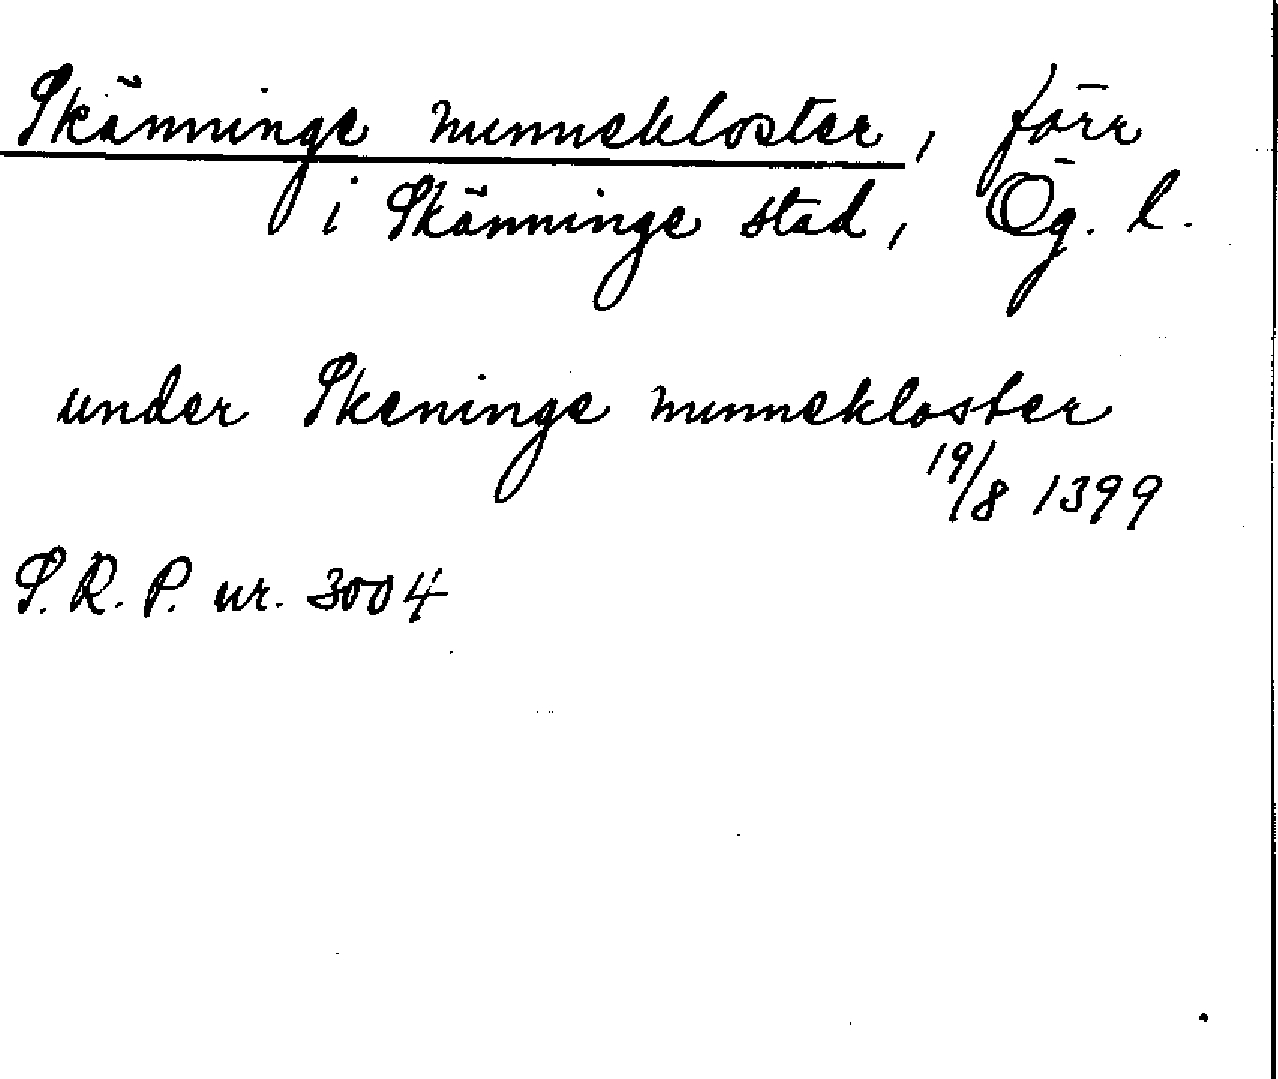 Skänninge nunnekloster, förr
i Skänninge stad, Ög. l.
under Skeninge nunnekloster
19/8 1399
S. R. P. nr. 3004